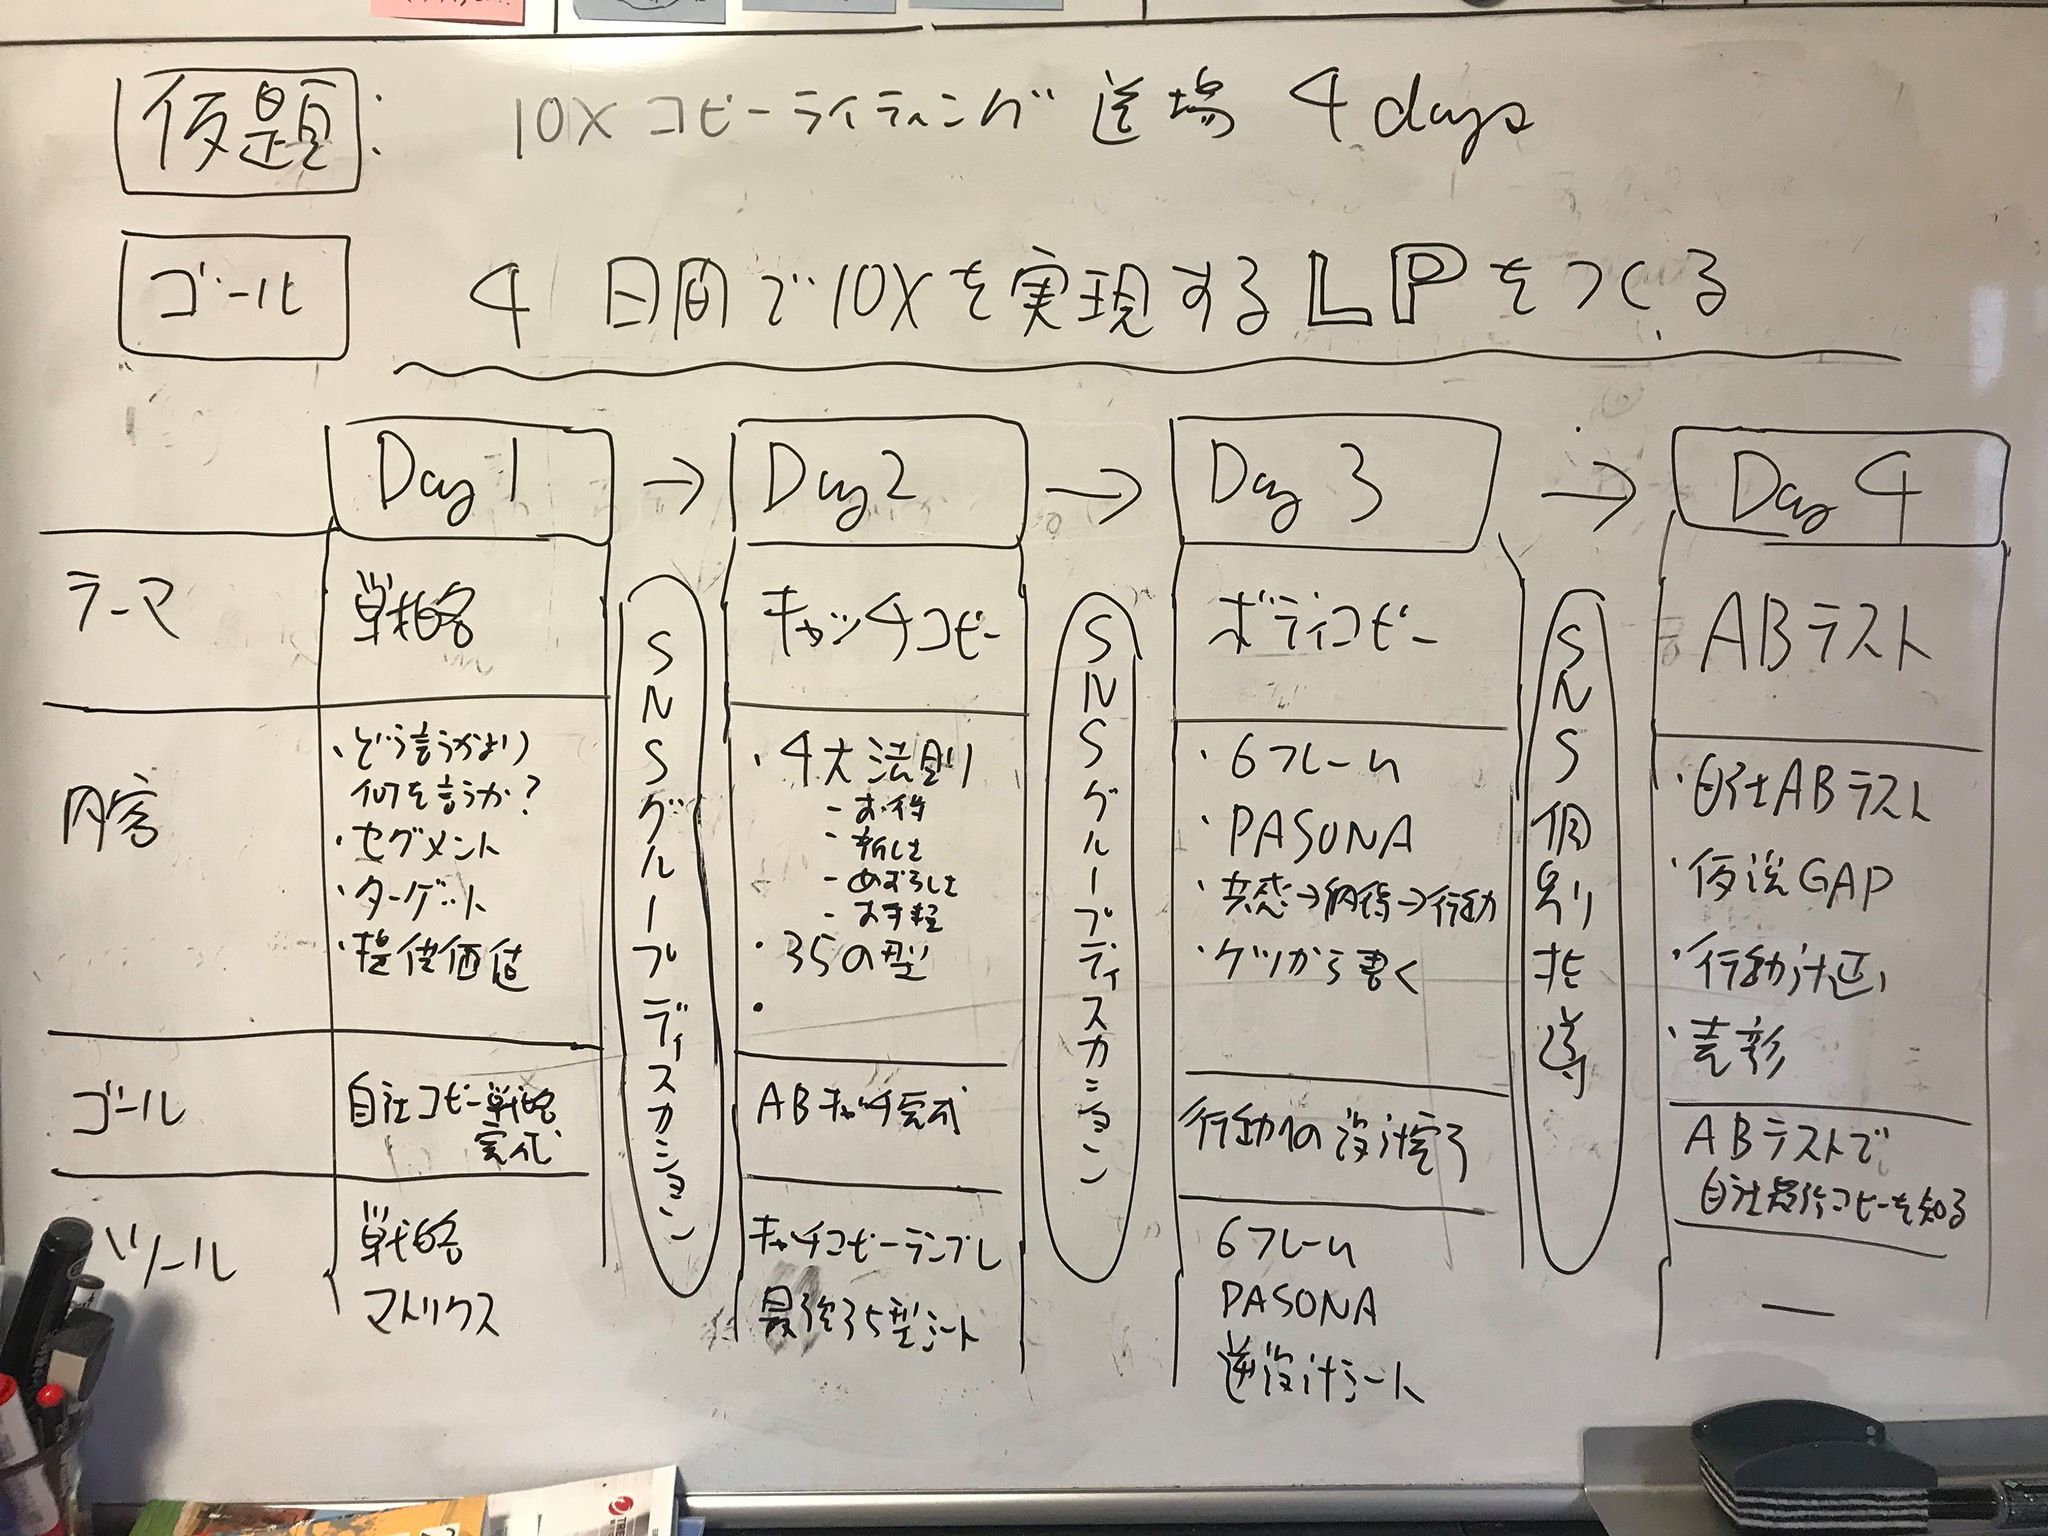 仮題: 10Xコピーライティング道場 4days
ゴール 4日間で10Xを実現するLPをつくる
Day1 → Day2 → Day3 → Day4
テーマ
戦略
キャッチコピー
ボディコピー
ABテスト
内容
・どう言うかより
何を言うか?
・セグメント
・ターゲット
・提供価値
・4大法則
－お得
－新しさ
－めずらしさ
－お手軽
・35の型
・
・6フレーム
・PASONA
・共感→納得→行動
・ケツから書く
・自社ABテスト
・仮説GAP
・行動計画
・表彰
ゴール
自社コピー戦略
完成
ABキャッチ完成
行動への設計完了
ABテストで
自社最強コピーを知る
ツール
戦略
マトリクス
キャッチコピーテンプレ
最強35型シート
6フレーム
PASONA
逆設計シート
—
SNSグループディスカション
SNSグループディスカション
SNS個別指導